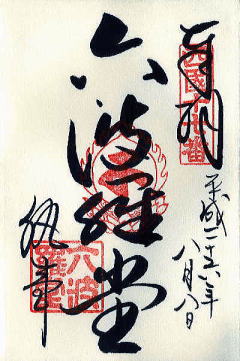 奉拝
西國十七番
平成二十六年
八月八日
六波羅堂
六波
羅蜜
執事